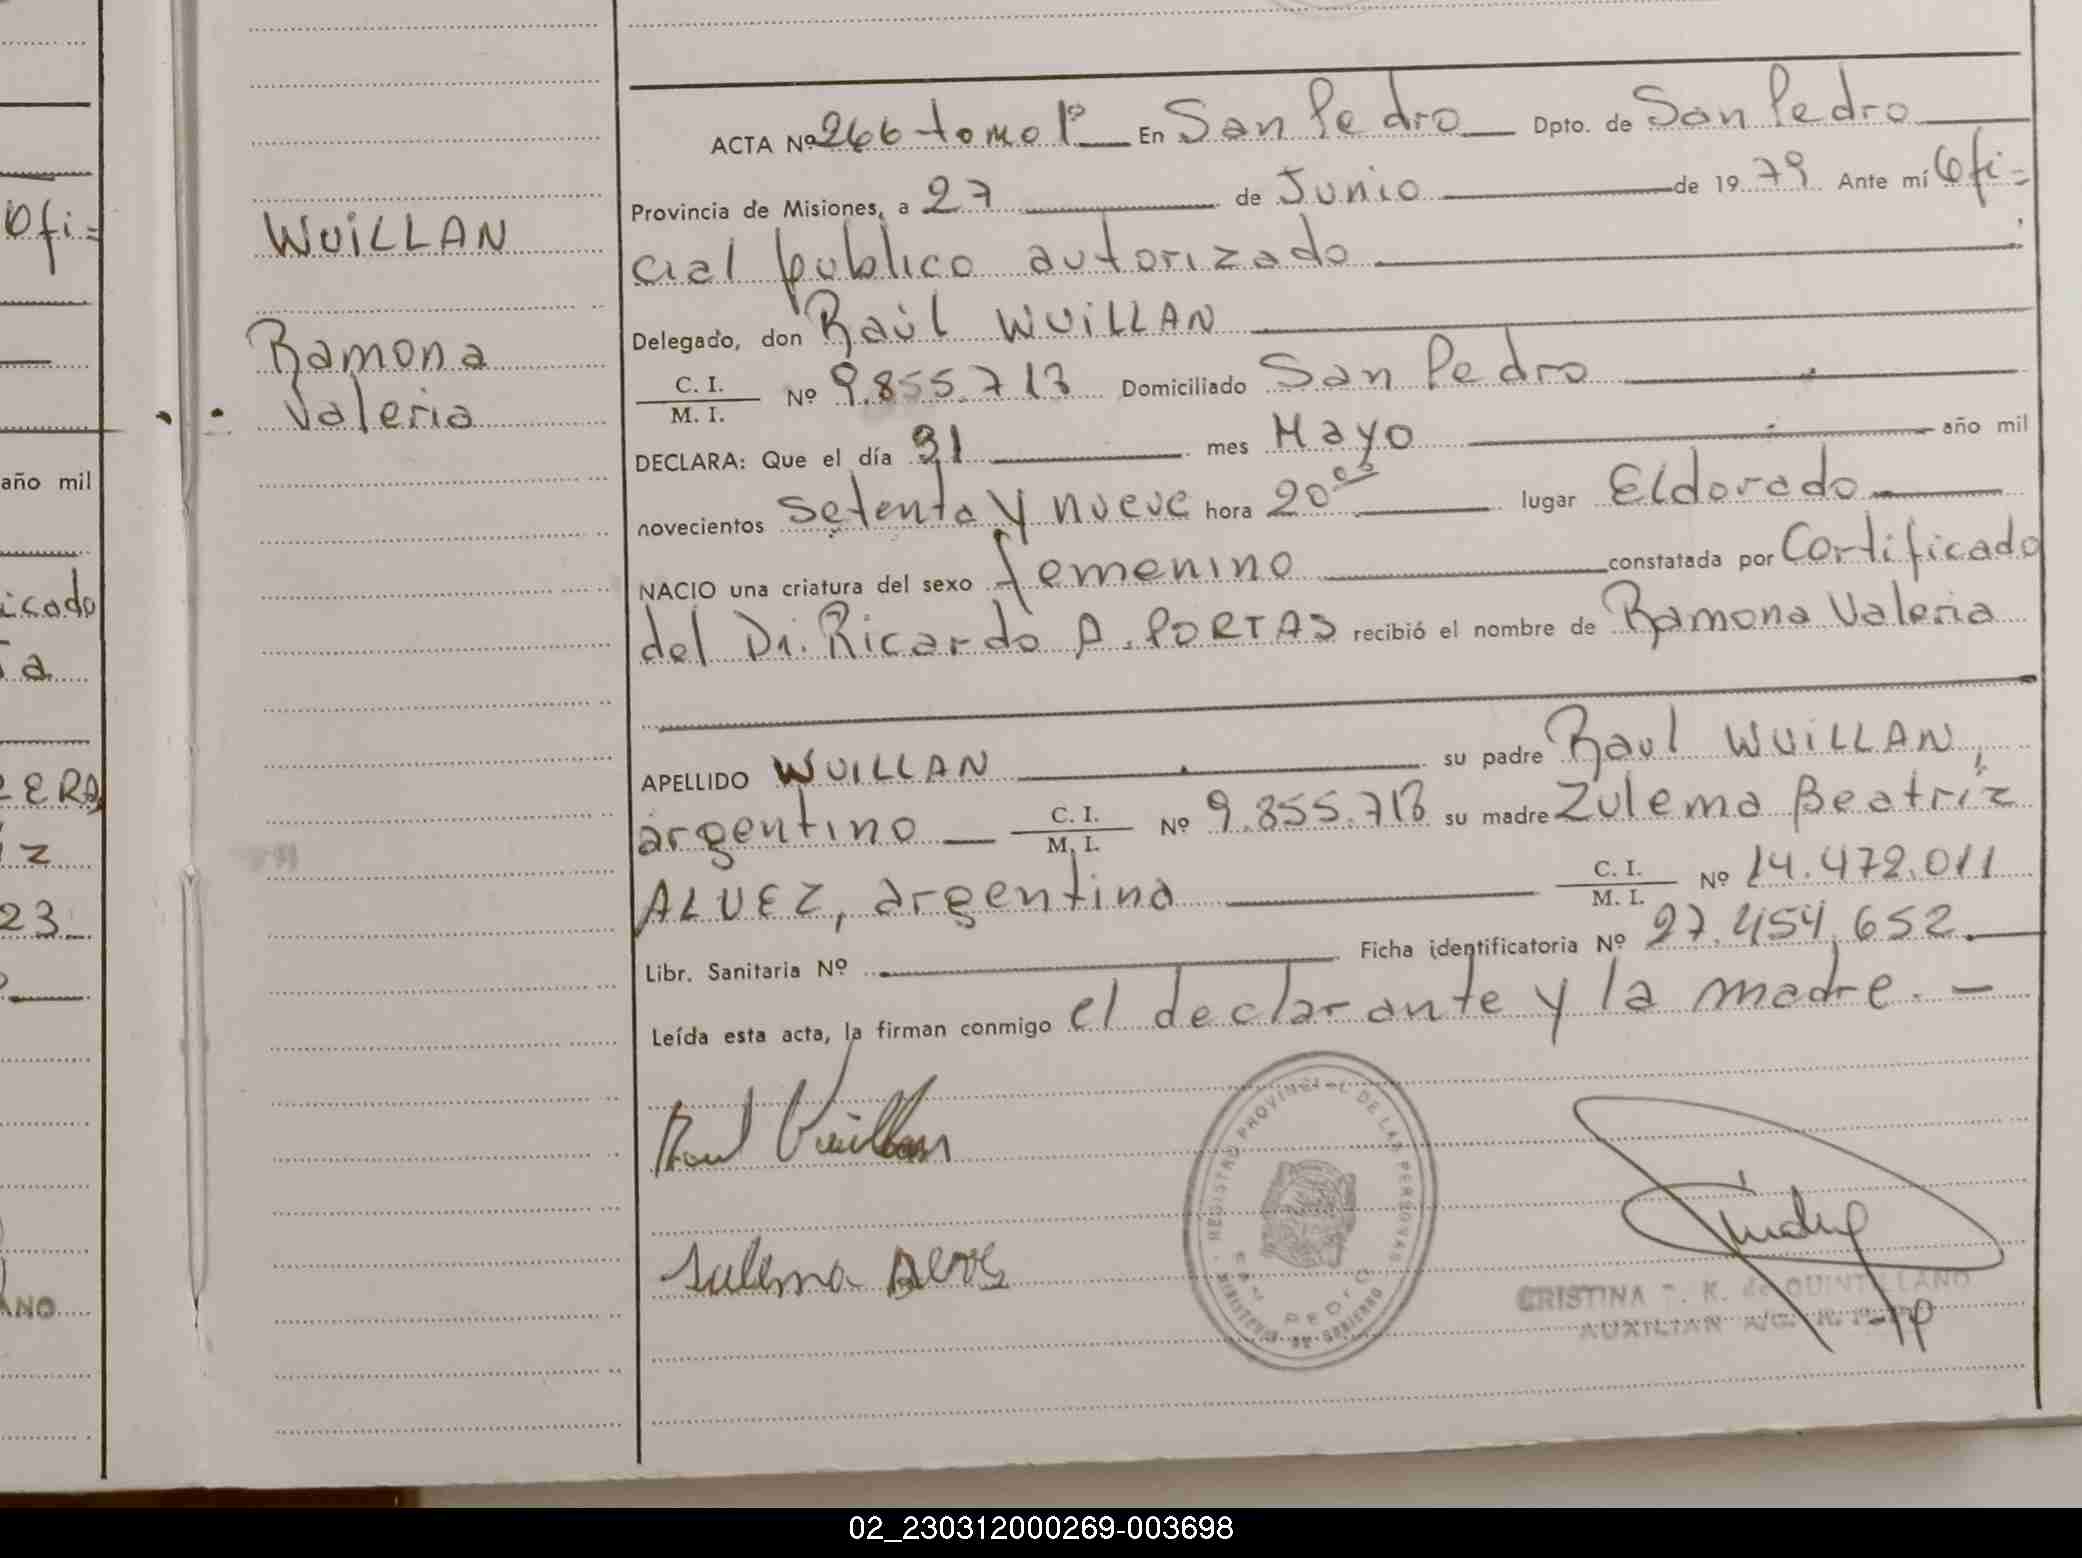 Ofi=
año mil
icado
ta
ERA
iz
23
ANO
WUILLAN
Ramona
Valeria
ACTA Nº 266 tomo 1º En San Pedro Dpto. de San Pedro
Provincia de Misiones, a 27 de Junio de 1979 Ante mí Ofi=
cial publico autorizado
Delegado, don Raúl WUILLAN
C. I.
M. I. Nº 9.855.713 Domiciliado San Pedro
DECLARA: Que el día 31 mes Mayo año mil
novecientos setenta y nueve hora 20 lugar Eldorado
NACIO una criatura del sexo femenino constatada por Certificado
del Dr. Ricardo A. PORTAS recibió el nombre de Ramona Valeria
APELLIDO WUILLAN su padre Raul WUILLAN,
argentino C. I. M. I. Nº 9.855.713 su madre Zulema Beatriz
ALVEZ, argentina C. I. M. I. Nº 14.472.011
Libr. Sanitaria Nº Ficha identificatoria Nº 27.454.652.
Leída esta acta, la firman conmigo el declarante y la madre. -
Raul Vuillan
REGISTRO PROVINCIAL DE LAS PERSONAS
MINISTERIO DE GOBIERNO
SAN PEDRO
Sulema
CRISTINA K. de QUINTILLANO
AUXILIAR
02_230312000269-003698